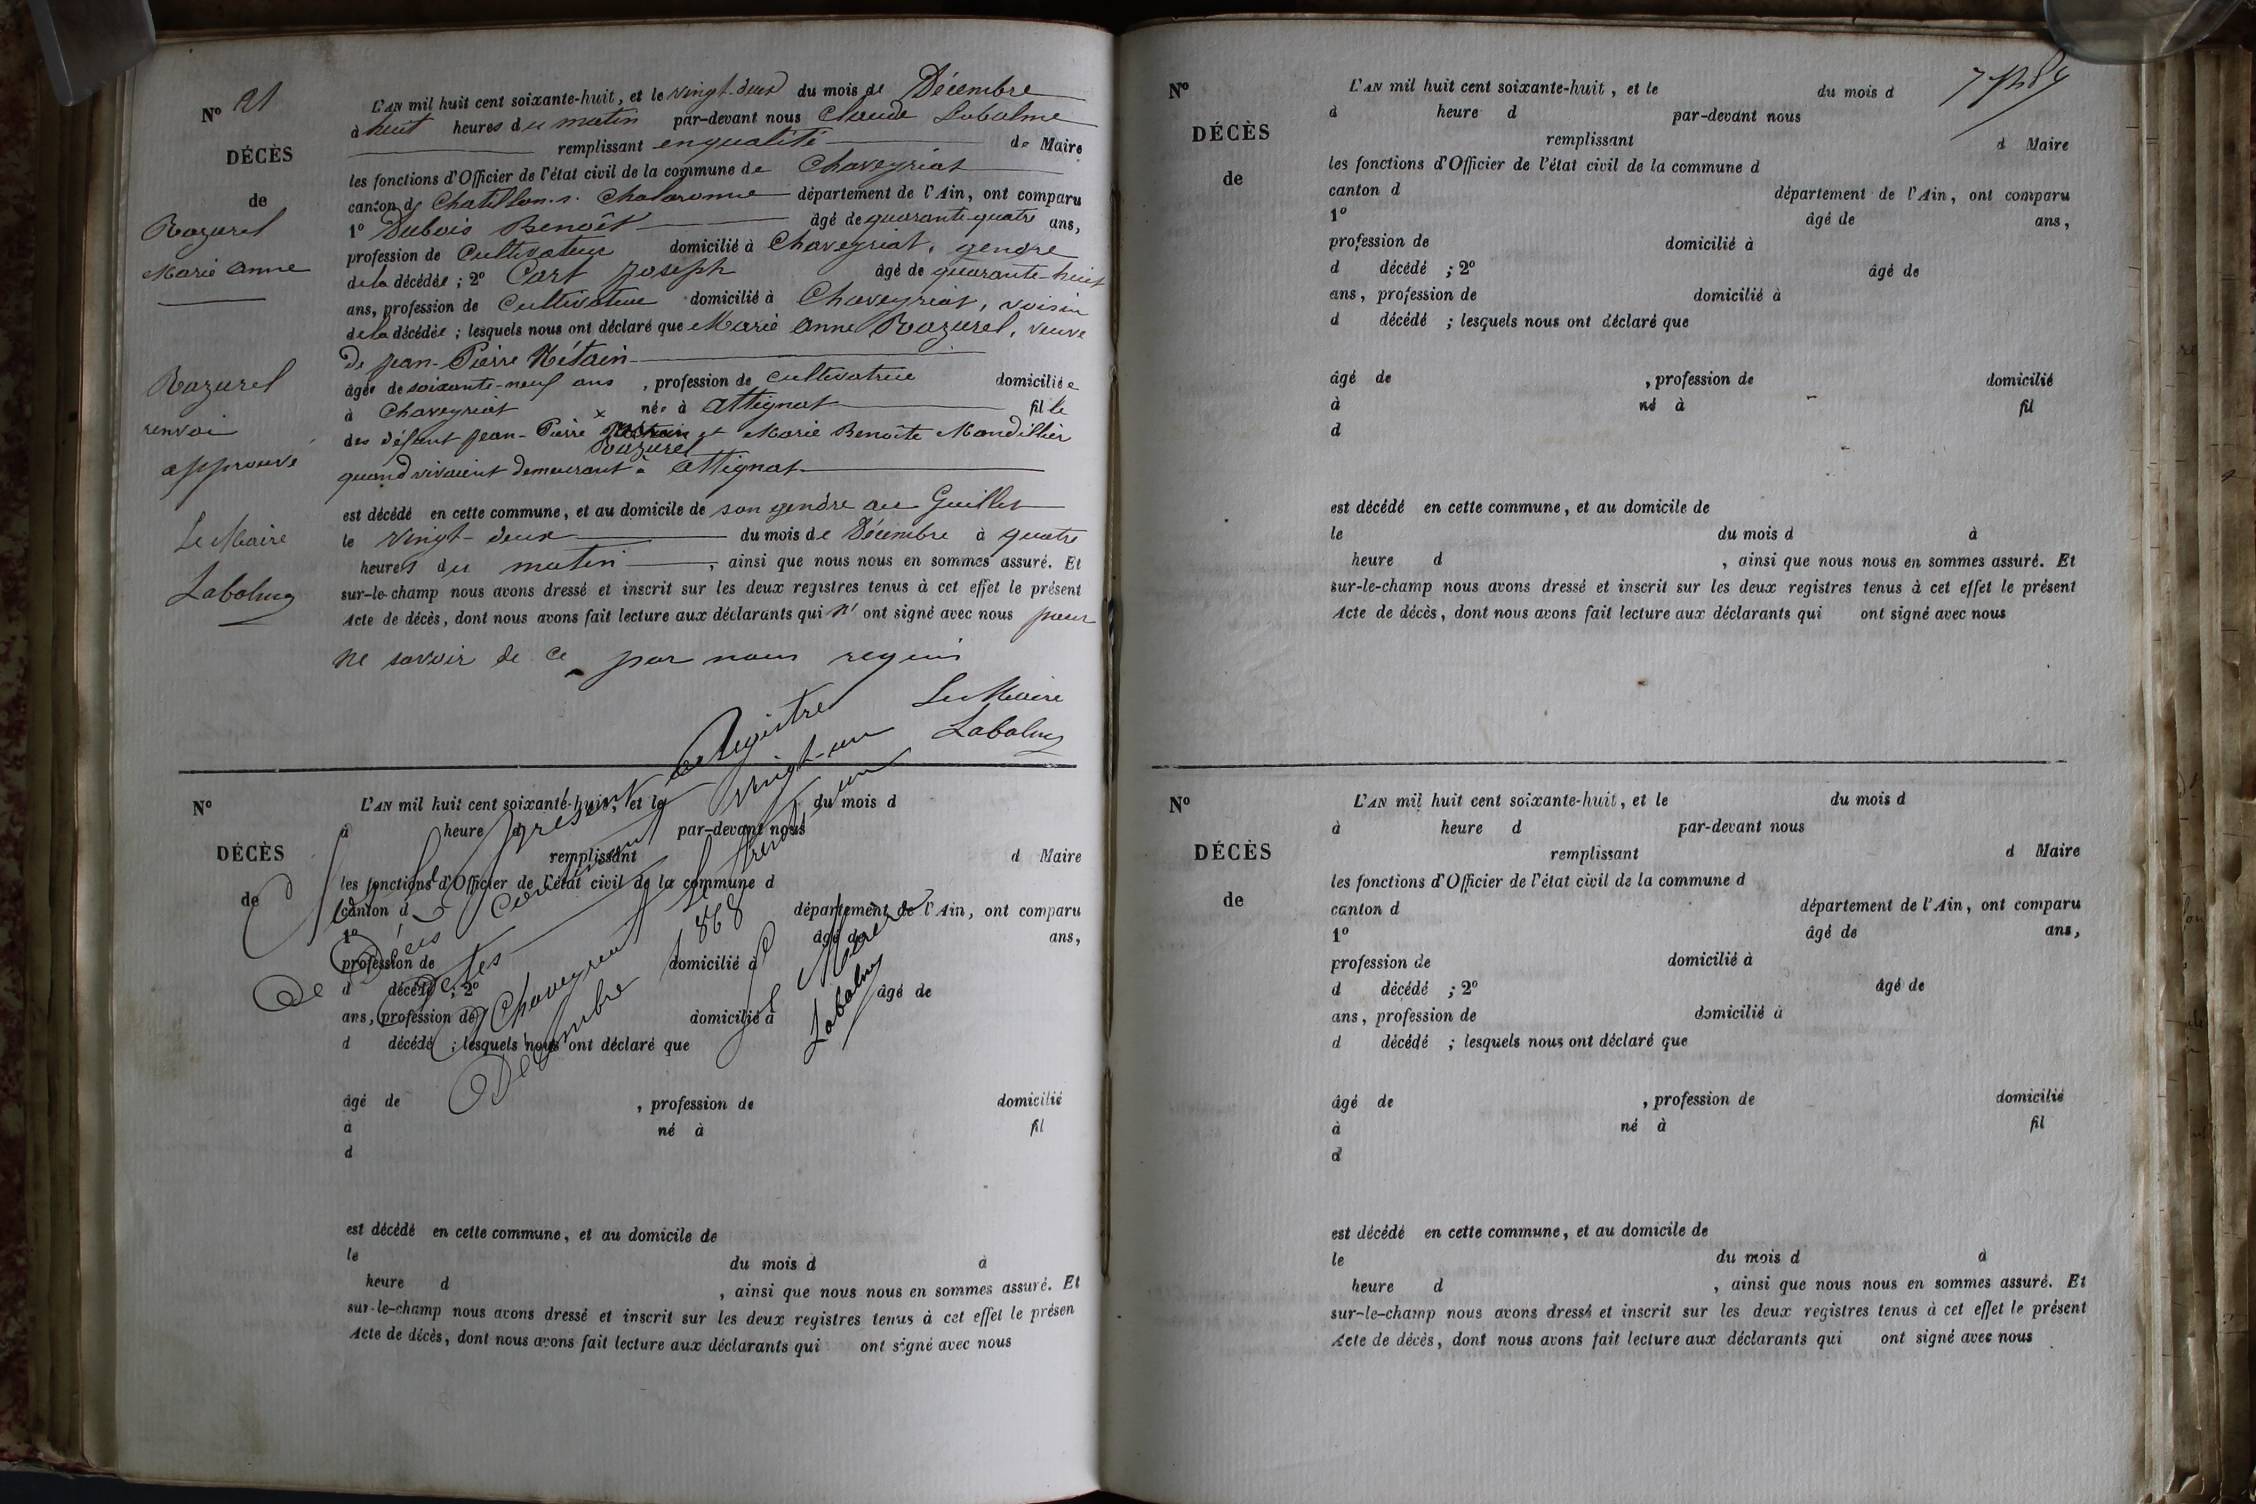 Nº 21
DÉCÈS
de
Razurel
Marie Anne
L'AN mil huit cent soixante-huit, et le vingt-deux du mois de Décembre
à huit heures du matin par-devant nous Claude Labalme
remplissant en qualité de Maire
les fonctions d'Officier de l'état civil de la commune de Chaveyriat
canton de Chatillon-s-Chalaronne département de l'Ain, ont comparu
1º Dubois Benoît âgé de quarante-quatre ans,
profession de Cultivateur domicilié à Chaveyriat, gendre
de la décédée ; 2º Cart Joseph âgé de quarante-huit
ans, profession de Cultivateur domicilié à Chaveyriat, voisin
de la décédée ; lesquels nous ont déclaré que Marie Anne Razurel, veuve
de Jean-Pierre Rétain
âgée de soixante-neuf ans, profession de cultivatrice domiciliée
à Chaveyriat née à Attignat fille
des défunt Jean-Pierre et Marie Benoîte Mandillier
Razurel
quand vivaient demeurant à Attignat
Razurel
renvoi
approuvé
Le Maire
Labalme
est décédé en cette commune, et au domicile de son gendre au Guillet
le vingt-deux du mois de Décembre à quatre
heures du matin, ainsi que nous nous en sommes assuré. Et
sur-le-champ nous avons dressé et inscrit sur les deux registres tenus à cet effet le présent
Acte de décès, dont nous avons fait lecture aux déclarants qui n'ont signé avec nous pour
ne savoir de ce par nous requis
Le Maire
Labalme
Nº
DÉCÈS
de
L'AN mil huit cent soixante-huit, et le du mois d
à heure d par-devant nous
remplissant d Maire
les fonctions d'Officier de l'état civil de la commune d
canton d département de l'Ain, ont comparu
1º âgé de ans,
profession de domicilié à
d décédé ; 2º âgé de
ans, profession de domicilié à
d décédé ; lesquels nous ont déclaré que
âgé de , profession de domicilié
à né à fil
d
est décédé en cette commune, et au domicile de
le du mois d à
heure d , ainsi que nous nous en sommes assuré. Et
sur-le-champ nous avons dressé et inscrit sur les deux registres tenus à cet effet le présen
Acte de décès, dont nous avons fait lecture aux déclarants qui ont signé avec nous
Clos le présent Registre
de Décès contenant vingt-un
actes
Chaveyriat le trente-un
Décembre 1868
Le Maire
Labalme
Nº
DÉCÈS
de
L'AN mil huit cent soixante-huit, et le du mois d
à heure d par-devant nous
remplissant d Maire
les fonctions d'Officier de l'état civil de la commune d
canton d département de l'Ain, ont comparu
1º âgé de ans,
profession de domicilié à
d décédé ; 2º âgé de
ans, profession de domicilié à
d décédé ; lesquels nous ont déclaré que
âgé de , profession de domicilié
à né à fil
d
est décédé en cette commune, et au domicile de
le du mois d à
heure d , ainsi que nous nous en sommes assuré. Et
sur-le-champ nous avons dressé et inscrit sur les deux registres tenus à cet effet le présent
Acte de décès, dont nous avons fait lecture aux déclarants qui ont signé avec nous
Nº
DÉCÈS
de
L'AN mil huit cent soixante-huit, et le du mois d
à heure d par-devant nous
remplissant d Maire
les fonctions d'Officier de l'état civil de la commune d
canton d département de l'Ain, ont comparu
1º âgé de ans,
profession de domicilié à
d décédé ; 2º âgé de
ans, profession de domicilié à
d décédé ; lesquels nous ont déclaré que
âgé de , profession de domicilié
à né à fil
d
est décédé en cette commune, et au domicile de
le du mois d à
heure d , ainsi que nous nous en sommes assuré. Et
sur-le-champ nous avons dressé et inscrit sur les deux registres tenus à cet effet le présent
Acte de décès, dont nous avons fait lecture aux déclarants qui ont signé avec nous